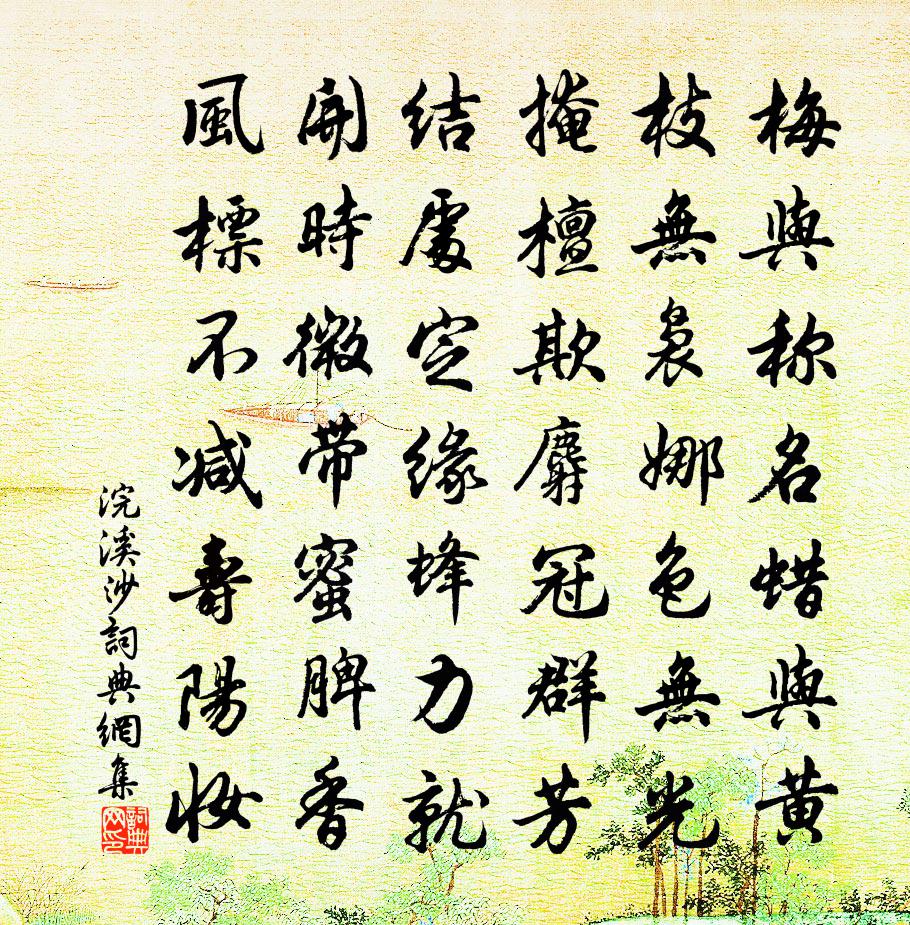 梅與称名蜡與黄
枝無裊娜色無光
掩檀欺麝冠群芳
結處定緣蜂力就
開時微带蜜脾香
風標不减壽陽妝
浣溪沙詞典網集
詞典网印